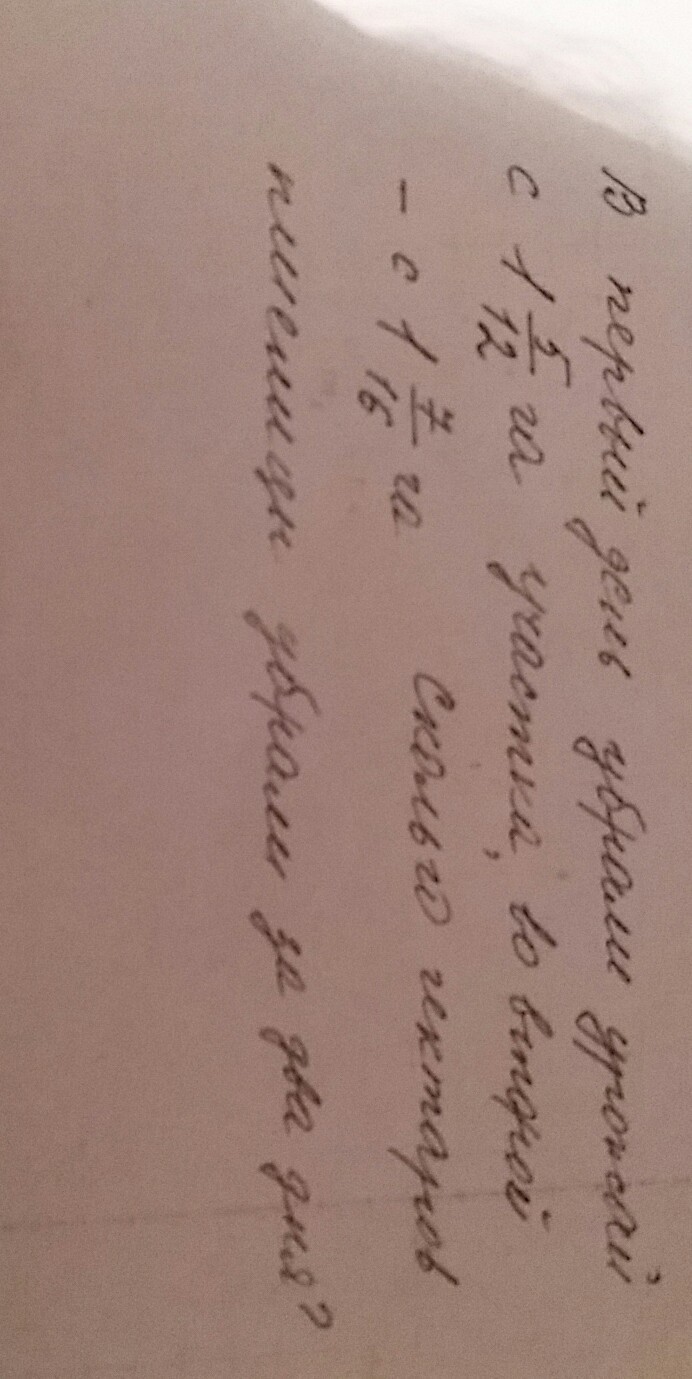 В первый день убрали урожай
с 1 5/12 га участка, во второй
– с 1 7/16 га Сколько гектаров
пшеницы убрали за два дня?